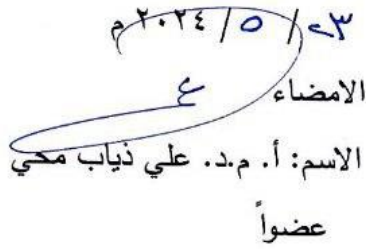 ٢٣ / ٥ / ٢٠٢٤ م
الامضاء
الاسم: أ. م.د. علي ذياب محي
عضواً